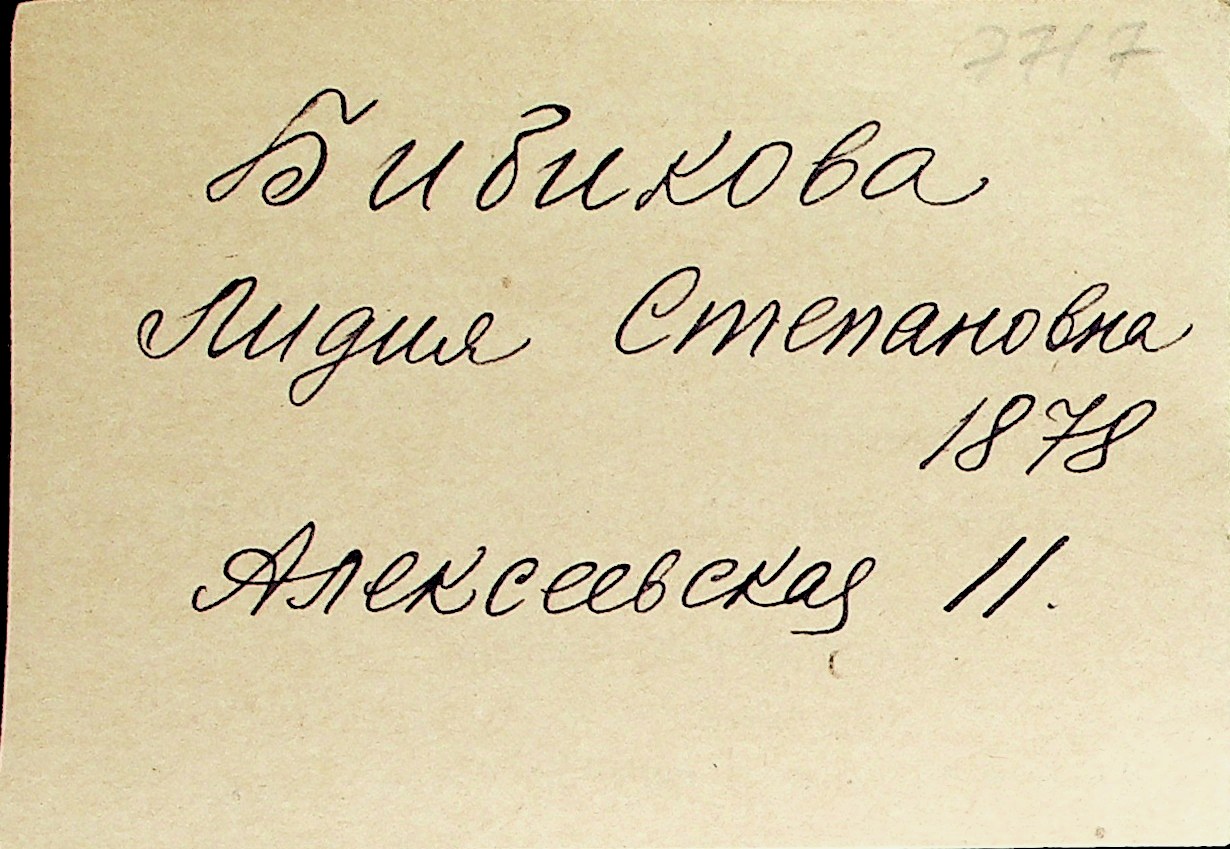 7717
Бибикова
Лидия Степановна
1878
Алексеевская 11.